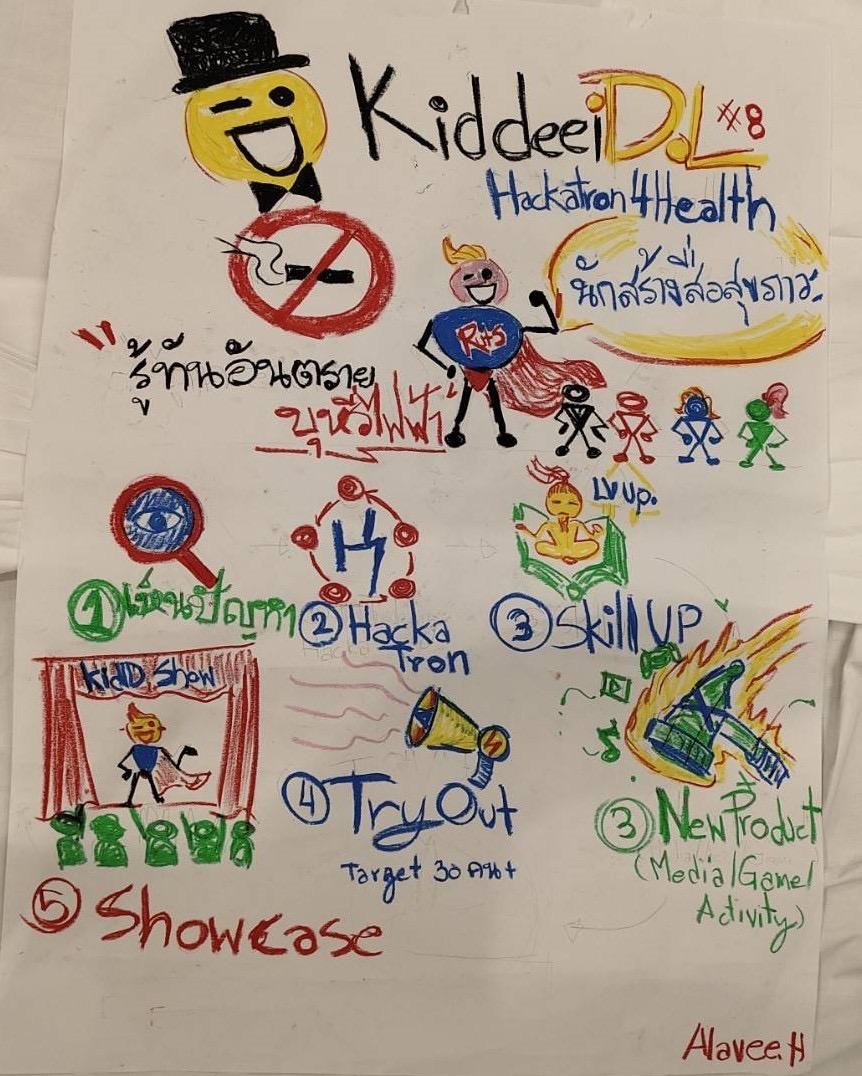 KiddeeiD.L #8
Hackatron4Health
นักสร้างสื่อสุขภาวะ
RHS
"รู้ทันอันตราย
บุหรี่ไฟฟ้า"
LV up.
① เห็นปัญหา
② Hacka
Tron
③ Skill UP
KidD Show
④ Try Out
Target 30 คน+
③ New Product
(Media/Game/
Activity)
⑤ Showcase
Alavee.H